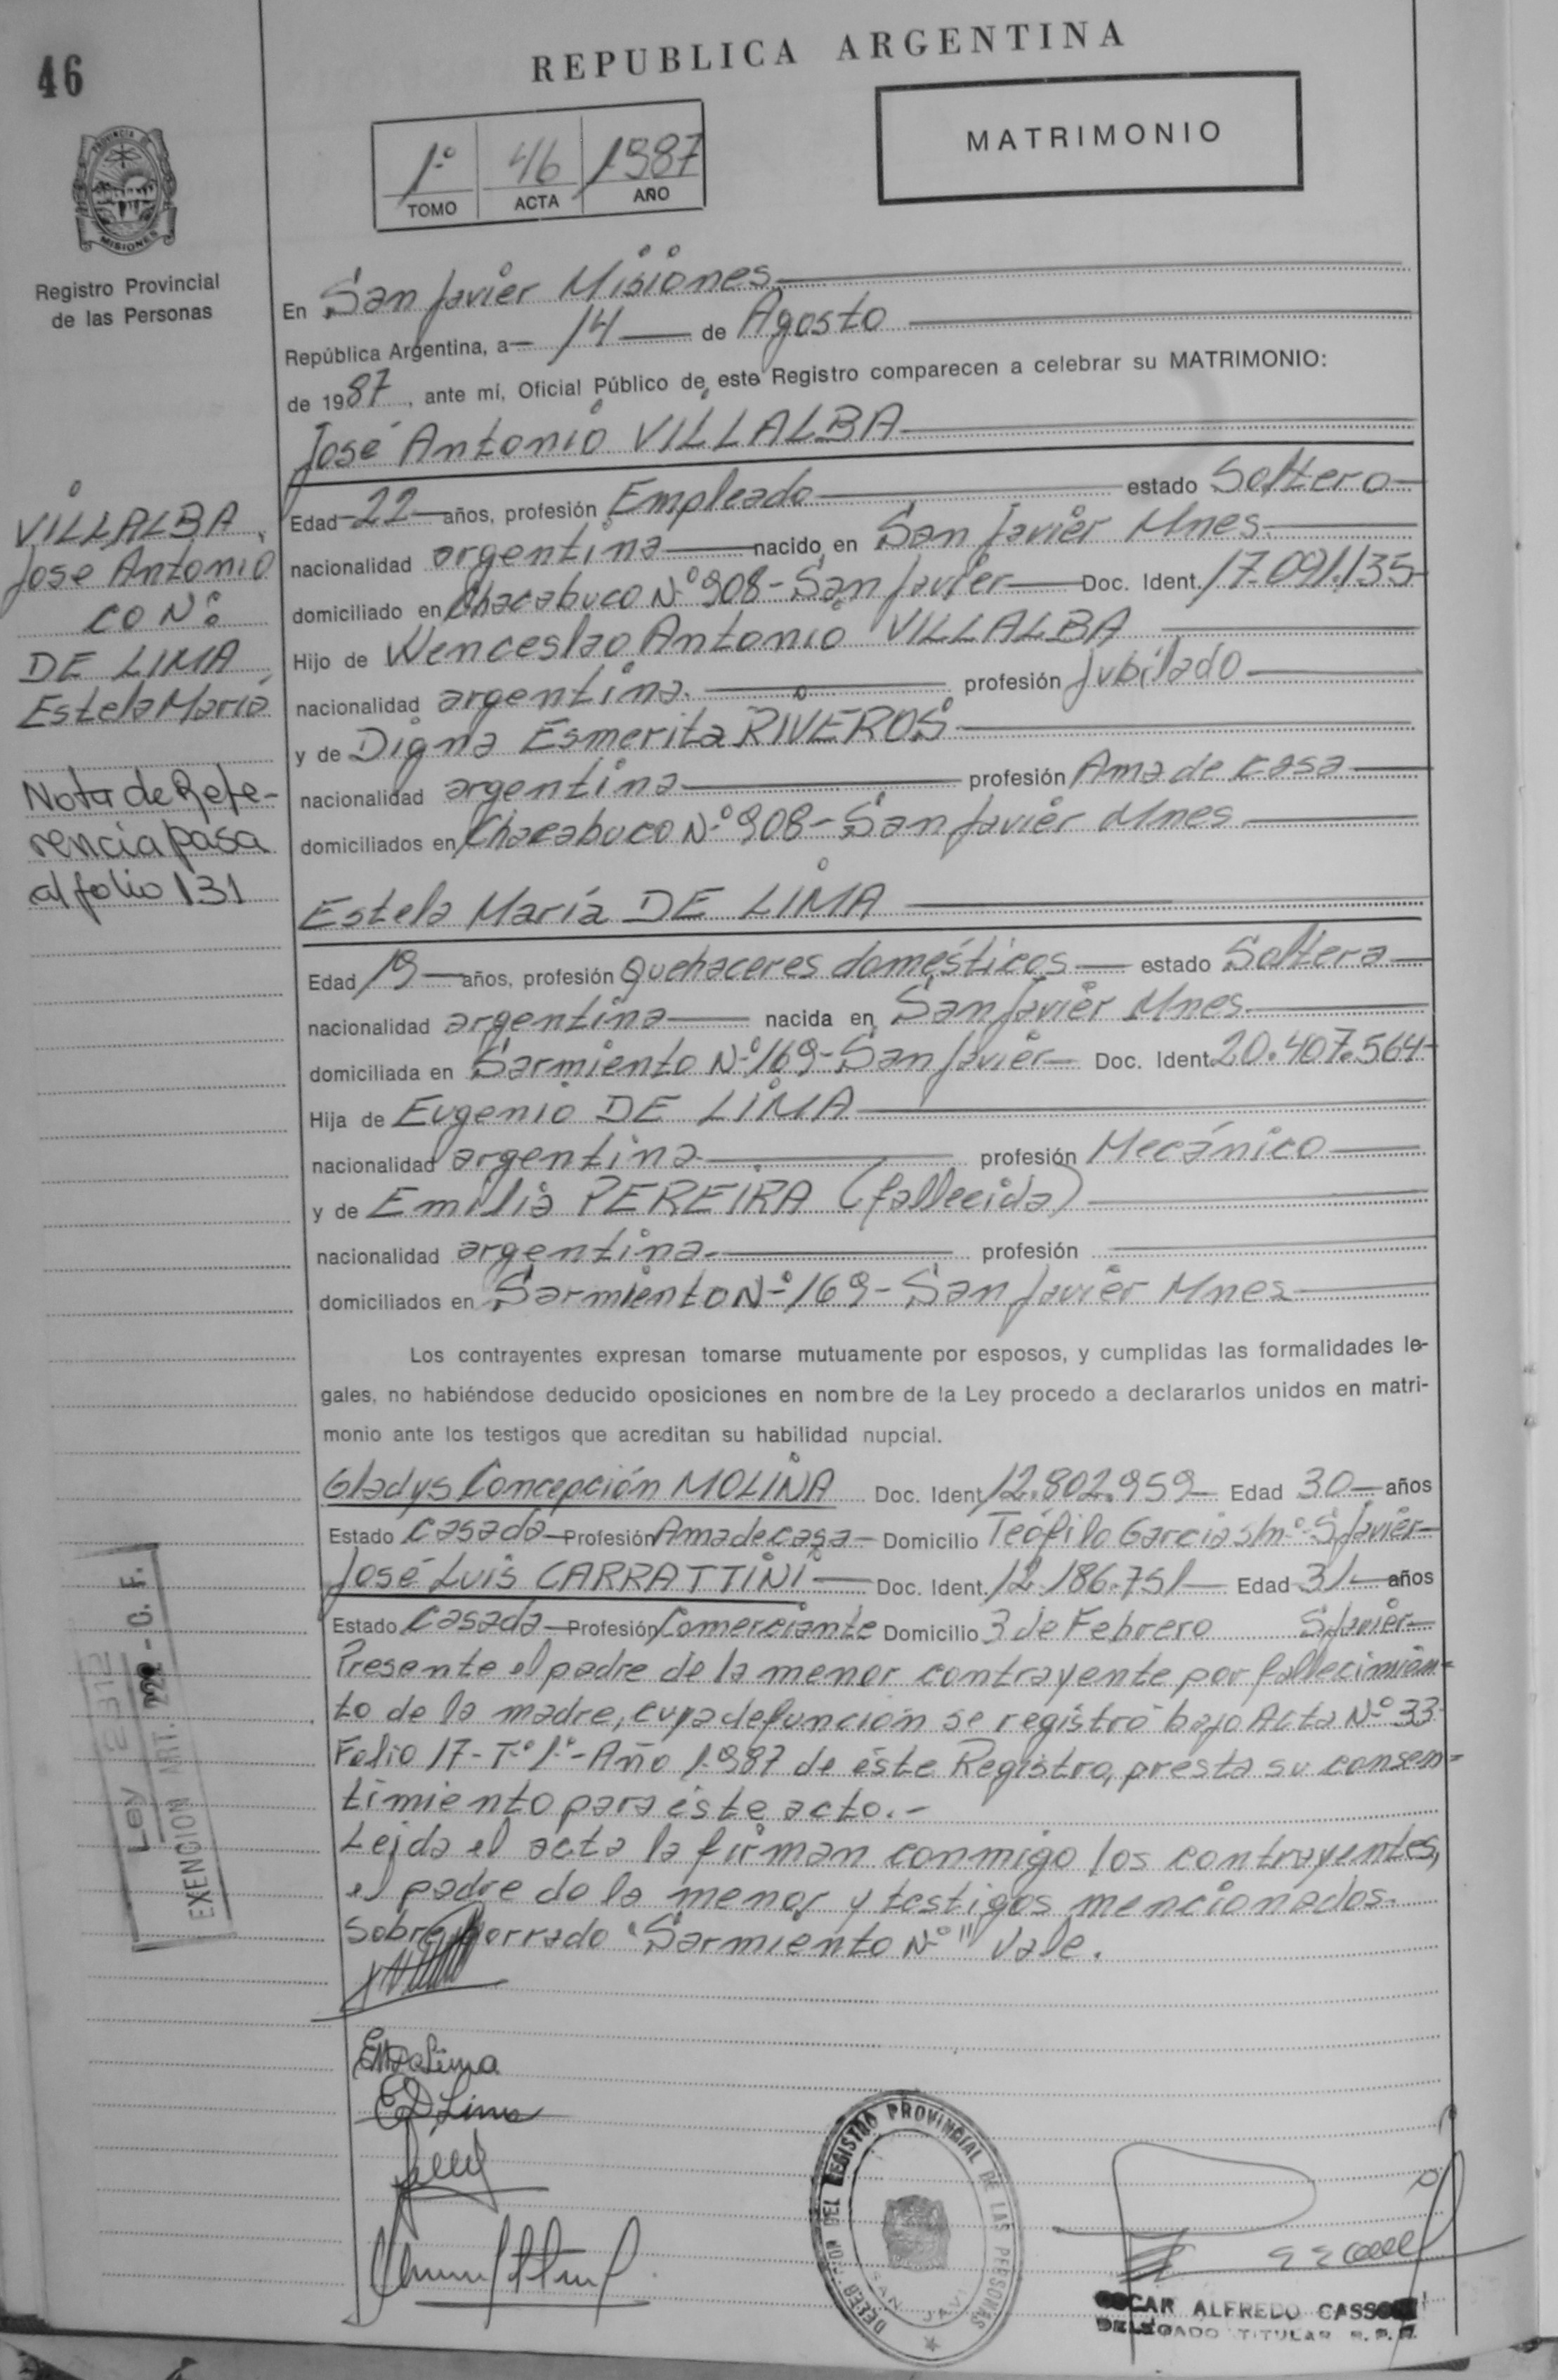 46
REPUBLICA ARGENTINA
1º 46 1987
TOMO ACTA AÑO
MATRIMONIO
PROVINCIA
MISIONES
Registro Provincial
de las Personas
En San Javier Misiones
República Argentina, a 14 de Agosto
de 1987, ante mí, Oficial Público de este Registro comparecen a celebrar su MATRIMONIO:
José Antonio VILLALBA
Edad 22 años, profesión Empleado estado Soltero
nacionalidad argentina nacido en San Javier Mnes.
domiciliado en Chacabuco Nº 908 - San Javier Doc. Ident. 17.091.135
Hijo de Wenceslao Antonio VILLALBA
nacionalidad argentina. profesión Jubilado
y de Digna Esmerita RIVEROS
nacionalidad argentina profesión Ama de casa
domiciliados en Chacabuco Nº 908 - San Javier Mnes
VILLALBA,
Jose Antonio
CON:
DE LIMA,
Estela María
Nota de Refe-
rencia pasa
al folio 131
Estela María DE LIMA
Edad 19 años, profesión Quehaceres domésticos estado Soltera
nacionalidad argentina nacida en San Javier Mnes.
domiciliada en Sarmiento Nº 169 - San Javier Doc. Ident. 20.407.564
Hija de Eugenio DE LIMA
nacionalidad argentina profesión Mecánico
y de Emilia PEREIRA (fallecida)
nacionalidad argentina. profesión
domiciliados en Sarmiento Nº 169 - San Javier Mnes
Los contrayentes expresan tomarse mutuamente por esposos, y cumplidas las formalidades le-
gales, no habiéndose deducido oposiciones en nombre de la Ley procedo a declararlos unidos en matri-
monio ante los testigos que acreditan su habilidad nupcial.
Gladys Concepción MOLINA Doc. Ident. 12.802.959 Edad 30 años
Estado casada Profesión Ama de casa Domicilio Teófilo Garcia s/nº S. Javier
José Luis CARRATTINI Doc. Ident. 12.186.751 Edad 31 años
Estado casada Profesión Comerciante Domicilio 3 de Febrero S. Javier
Presente el padre de la menor contrayente por fallecimien=
to de la madre, cuya defunción se registró bajo Acta Nº 33
Folio 17 - Tº 1º - Año 1.987 de éste Registro, presta su consen=
timiento para éste acto.-
Leída el acta la firman conmigo los contrayentes,
el padre de la menor y testigos mencionados.
Sobre borrado "Sarmiento Nº" Vale.
Ley 2312
EXENCION ART. - C. F.
E M de Lima
E D Lima
DELEGACION DEL REGISTRO PROVINCIAL DE LAS PERSONAS
SAN JAVI
OSCAR ALFREDO
DELEGADO TITULAR R. P. P.